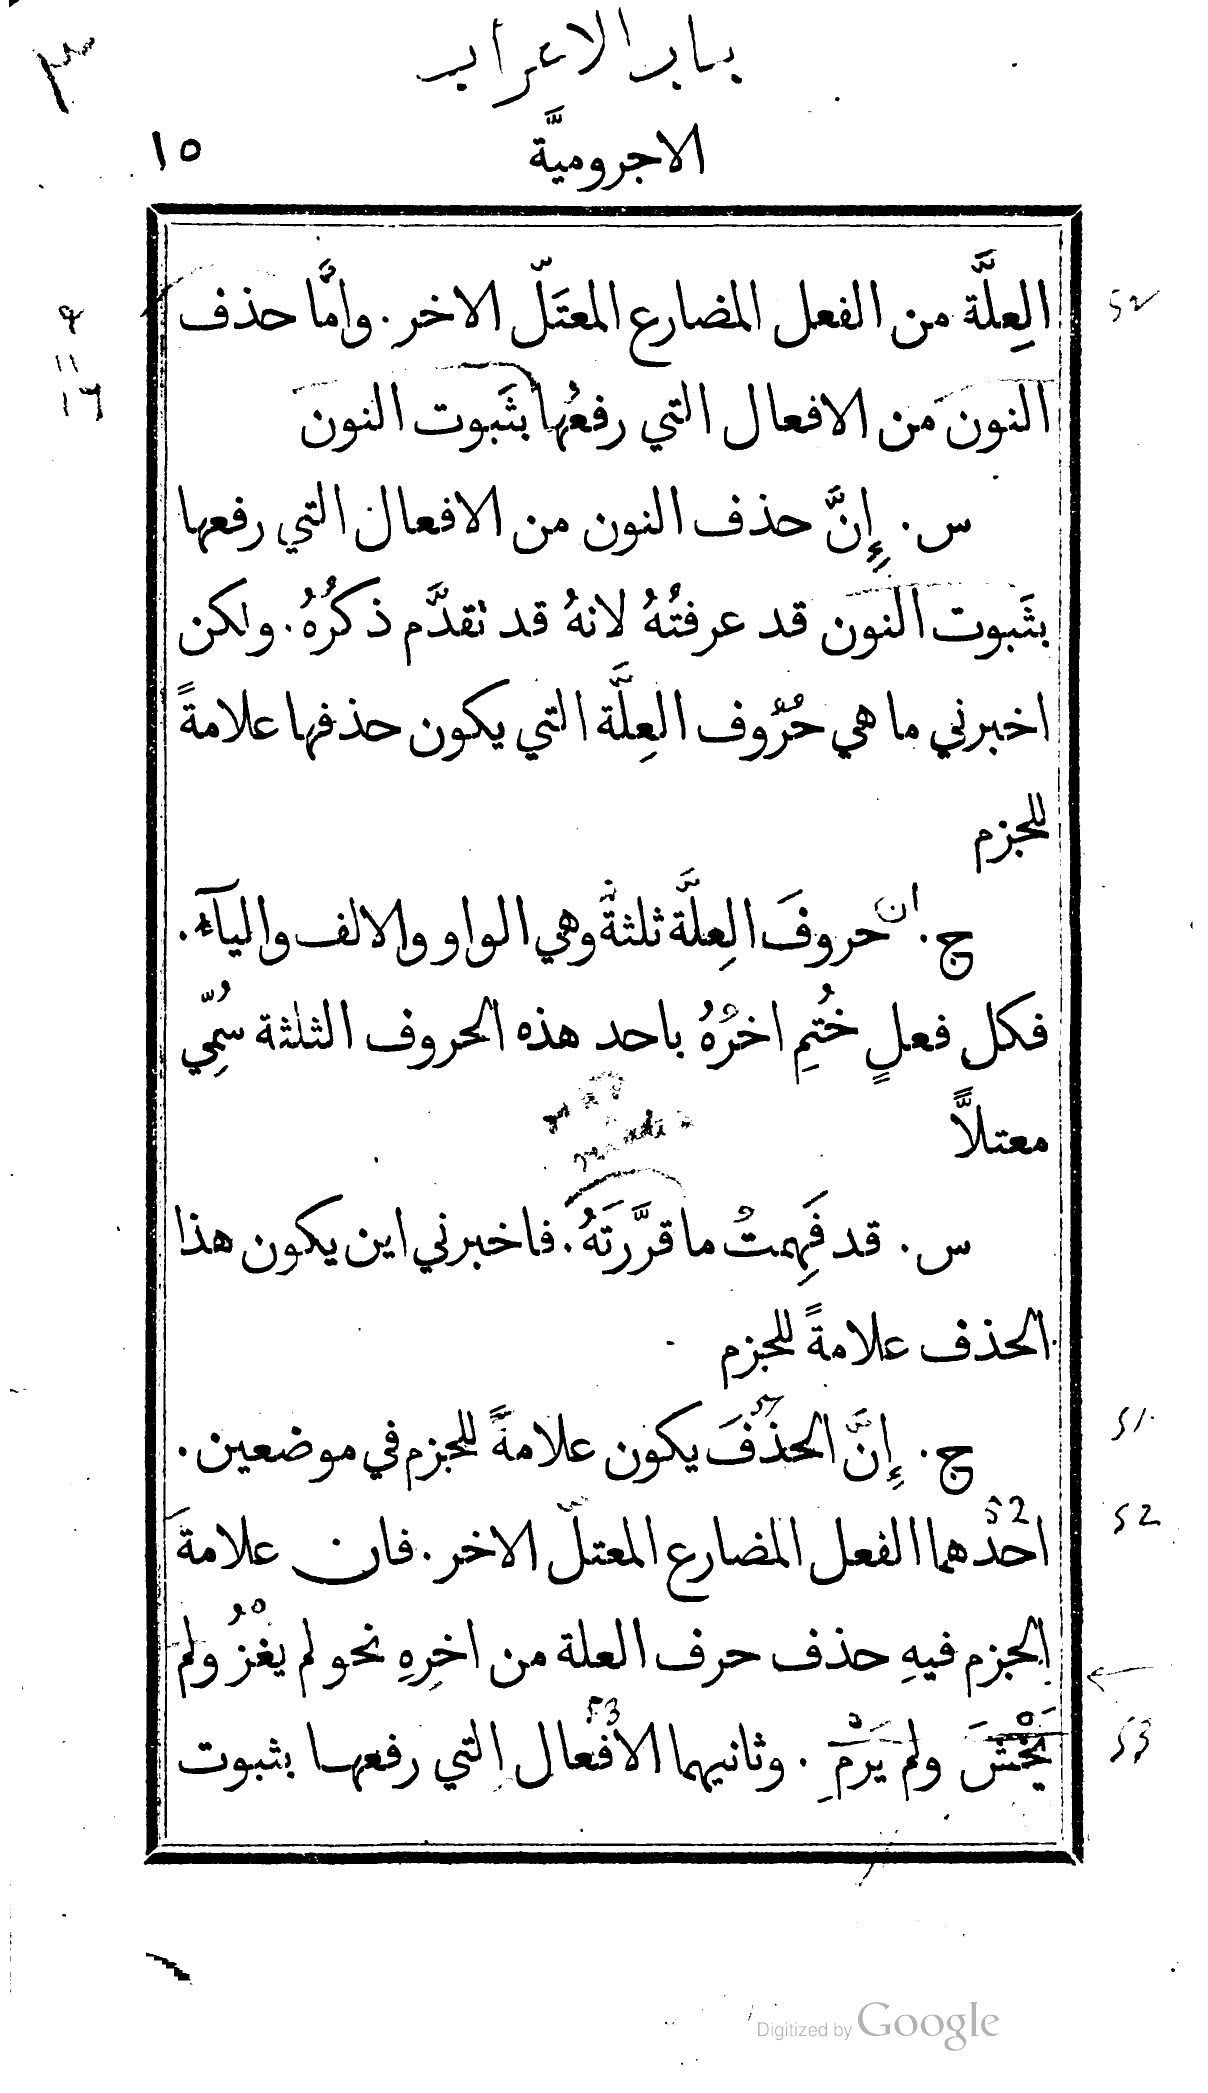 باب الاعراب
الاجروميَّة ١٥
العِلَّة من الفعل المضارع المعتَلّ الاخر. وامَّا حذف
النون من الافعال التي رفعُها بثَبوت النون
س. إِنَّ حذف النون من الافعال التي رفعها
بثَبوت النون قد عرفتُهُ لانهُ قد تقدَّم ذكرُهُ. ولكن
اخبرني ما هي حُرُوف العِلَّة التي يكون حذفها علامةً
للجزم
ج. ان حروفَ العِلَّة ثلثةٌ وهي الواو والالف واليآء.
فكل فعلٍ خُتمِ اخرُهُ باحد هذه الحروف الثلثة سُمِّي
معتلاًّ
س. قد فَهِمتُ ما قرَّرتَهُ. فاخبرني اين يكون هذا
الحذف علامةً للجزم
ج. إِنَّ الحذفَ يكون علامةً للجزم في موضعين.
احدهما الفعل المضارع المعتلّ الاخر. فان علامةَ
الجزم فيهِ حذف حرف العلة من اخِرِهِ نحو لم يغْزُ ولم
يَخْشَ ولم يَرْمِ. وثانيهما الافعال التي رفعها بثبوت
52
51
52
53
52
53
Digitized by Google